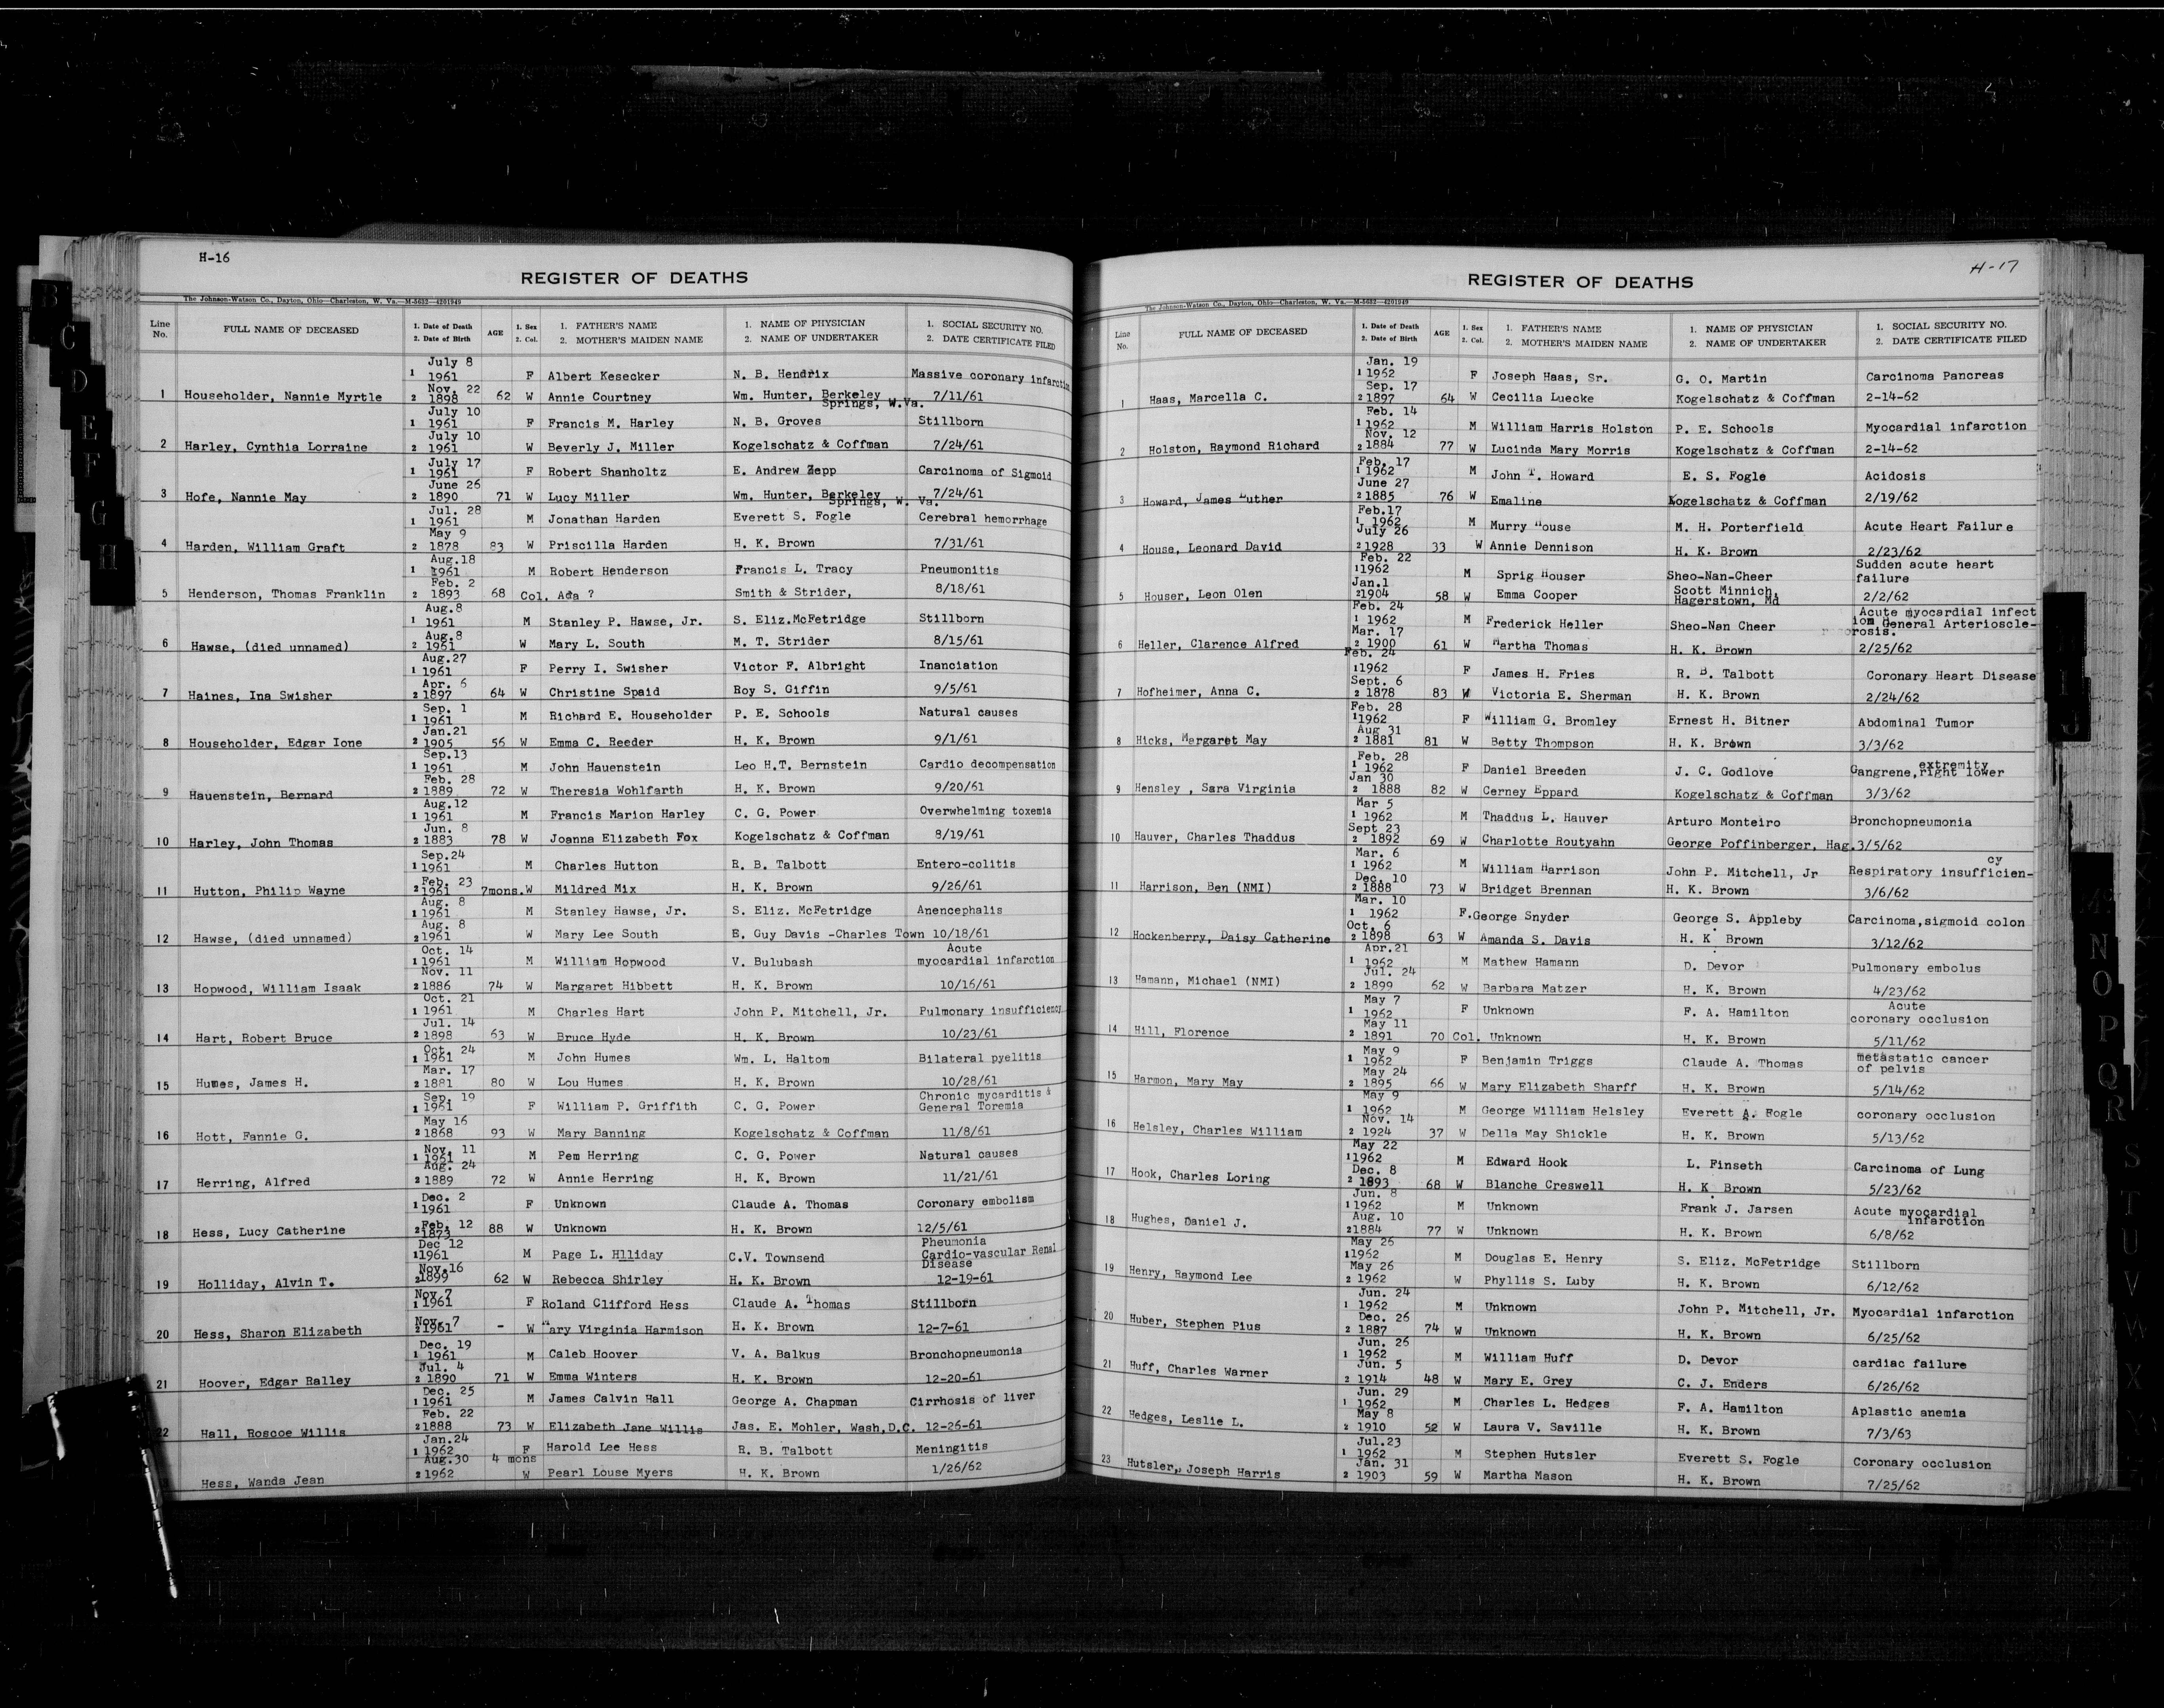 H-16
REGISTER OF DEATHS
The Johnson-Watson Co., Dayton, Ohio—Charleston, W. Va.—M-5632—4201949
Line No. FULL NAME OF DECEASED 1. Date of Death 2. Date of Birth AGE 1. Sex 2. Col. 1. FATHER'S NAME 2. MOTHER'S MAIDEN NAME 1. NAME OF PHYSICIAN 2. NAME OF UNDERTAKER 1. SOCIAL SECURITY NO. 2. DATE CERTIFICATE FILED
July 8
1 1961 F Albert Kesecker N. B. Hendrix Massive coronary infarction
Nov. 22
1 Householder, Nannie Myrtle 2 1898 62 W Annie Courtney Wm. Hunter, Berkeley Springs, W.Va. 7/11/61
July 10
1 1961 F Francis M. Harley N. B. Groves Stillborn
July 10
2 Harley, Cynthia Lorraine 2 1961 W Beverly J. Miller Kogelschatz & Coffman 7/24/61
July 17
1 1961 F Robert Shanholtz E. Andrew Zepp Carcinoma of Sigmoid
June 26
3 Hofe, Nannie May 2 1890 71 W Lucy Miller Wm. Hunter, Berkeley Springs, W. Va. 7/24/61
Jul. 28
1 1961 M Jonathan Harden Everett S. Fogle Cerebral hemorrhage
May 9
4 Harden, William Graft 2 1878 83 W Priscilla Harden H. K. Brown 7/31/61
Aug.18
1 1961 M Robert Henderson Francis L. Tracy Pneumonitis
Feb. 2
5 Henderson, Thomas Franklin 2 1893 68 Col. Ada ? Smith & Strider, 8/18/61
Aug.8
1 1961 M Stanley P. Hawse, Jr. S. Eliz.McFetridge Stillborn
Aug.8
6 Hawse, (died unnamed) 2 1961 W Mary L. South M. T. Strider 8/15/61
Aug.27
1 1961 F Perry I. Swisher Victor F. Albright Inanciation
Apr. 6
7 Haines, Ina Swisher 2 1897 64 W Christine Spaid Roy S. Giffin 9/5/61
Sep. 1
1 1961 M Richard E. Householder P. E. Schools Natural causes
Jan.21
8 Householder, Edgar Ione 2 1905 56 W Emma C. Reeder H. K. Brown 9/1/61
Sep.13
1 1961 M John Hauenstein Leo H.T. Bernstein Cardio decompensation
Feb. 28
9 Hauenstein, Bernard 2 1889 72 W Theresia Wohlfarth H. K. Brown 9/20/61
Aug.12
1 1961 M Francis Marion Harley C. G. Power Overwhelming toxemia
Jun. 8
10 Harley, John Thomas 2 1883 78 W Joanna Elizabeth Fox Kogelschatz & Coffman 8/19/61
Sep.24
1 1961 M Charles Hutton R. B. Talbott Entero-colitis
Feb. 23
11 Hutton, Philip Wayne 2 1961 7mons. W Mildred Mix H. K. Brown 9/26/61
Aug. 8
1 1961 M Stanley Hawse, Jr. S. Eliz. McFetridge Anencephalis
Aug. 8
12 Hawse, (died unnamed) 2 1961 W Mary Lee South B. Guy Davis -Charles Town 10/18/61
Oct. 14 Acute
1 1961 M William Hopwood V. Bulubash myocardial infarction
Nov. 11
13 Hopwood, William Isaak 2 1886 74 W Margaret Hibbett H. K. Brown 10/16/61
Oct. 21
1 1961 M Charles Hart John P. Mitchell, Jr. Pulmonary insufficiency
Jul. 14
14 Hart, Robert Bruce 2 1898 63 W Bruce Hyde H. K. Brown 10/23/61
Oct. 24
1 1961 M John Humes Wm. L. Haltom Bilateral pyelitis
Mar. 17
15 Humes, James H. 2 1881 80 W Lou Humes H. K. Brown 10/28/61
Sep. 19 Chronic mycarditis &
1 1961 F William P. Griffith C. G. Power General Toremia
May 16
16 Hott, Fannie G. 2 1868 93 W Mary Banning Kogelschatz & Coffman 11/8/61
Nov. 11
1 1961 M Pem Herring C. G. Power Natural causes
Aug. 24
17 Herring, Alfred 2 1889 72 W Annie Herring H. K. Brown 11/21/61
Dec. 2
1 1961 F Unknown Claude A. Thomas Coronary embolism
Feb. 12
18 Hess, Lucy Catherine 2 1873 88 W Unknown H. K. Brown 12/5/61
Dec 12 Pheumonia
1 1961 M Page L. Hlliday C.V. Townsend Cardio-vascular Renal Disease
Nov.16
19 Holliday, Alvin T. 2 1899 62 W Rebecca Shirley H. K. Brown 12-19-61
Nov.7
1 1961 F Roland Clifford Hess Claude A. Thomas Stillborn
Nov. 7
20 Hess, Sharon Elizabeth 2 1961 - W Mary Virginia Harmison H. K. Brown 12-7-61
Dec. 19
1 1961 M Caleb Hoover V. A. Balkus Bronchopneumonia
Jul. 4
21 Hoover, Edgar Ralley 2 1890 71 W Emma Winters H. K. Brown 12-20-61
Dec. 25
1 1961 M James Calvin Hall George A. Chapman Cirrhosis of liver
Feb. 22
22 Hall, Roscoe Willis 2 1888 73 W Elizabeth Jane Willis Jas. E. Mohler, Wash,D.C. 12-26-61
Jan.24
1 1962 F Harold Lee Hess R. B. Talbott Meningitis
Aug.30 4 mons
Hess, Wanda Jean 2 1962 W Pearl Louse Myers H. K. Brown 1/26/62
H-17
REGISTER OF DEATHS
The Johnson-Watson Co., Dayton, Ohio—Charleston, W. Va.—M-5632—4201949
Line No. FULL NAME OF DECEASED 1. Date of Death 2. Date of Birth AGE 1. Sex 2. Col. 1. FATHER'S NAME 2. MOTHER'S MAIDEN NAME 1. NAME OF PHYSICIAN 2. NAME OF UNDERTAKER 1. SOCIAL SECURITY NO. 2. DATE CERTIFICATE FILED
Jan. 19
1 1962 F Joseph Haas, Sr. G. O. Martin Carcinoma Pancreas
Sep. 17
1 Haas, Marcella C. 2 1897 64 W Cecilia Luecke Kogelschatz & Coffman 2-14-62
Feb. 14
1 1962 M William Harris Holston P. E. Schools Myocardial infarction
Nov. 12
2 Holston, Raymond Richard 2 1884 77 W Lucinda Mary Morris Kogelschatz & Coffman 2-14-62
Feb. 17
1 1962 M John T. Howard E. S. Fogle Acidosis
June 27
3 Howard, James Luther 2 1885 76 W Emaline Kogelschatz & Coffman 2/19/62
Feb.17
1 1962 M Murry House M. H. Porterfield Acute Heart Failure
July 26
4 House, Leonard David 2 1928 33 W Annie Dennison H. K. Brown 2/23/62
Feb. 22 Sudden acute heart
1 1962 M Sprig Houser Sheo-Nan-Cheer failure
Jan.1
5 Houser, Leon Olen 2 1904 58 W Emma Cooper Scott Minnich, Hagerstown, Md 2/2/62
Feb. 24 Acute myocardial infect
1 1962 M Frederick Heller Sheo-Nan Cheer ion General Arterioscle-
Mar. 17 rosis.
6 Heller, Clarence Alfred 2 1900 61 W Martha Thomas H. K. Brown 2/25/62
Feb. 24
1 1962 F James H. Fries R. B. Talbott Coronary Heart Disease
Sept. 6
7 Hofheimer, Anna C. 2 1878 83 W Victoria E. Sherman H. K. Brown 2/24/62
Feb. 28
1 1962 F William G. Bromley Ernest H. Bitner Abdominal Tumor
Aug 31
8 Hicks, Margaret May 2 1881 81 W Betty Thompson H. K. Brown 3/3/62
Feb. 28 extremity
1 1962 F Daniel Breeden J. C. Godlove Gangrene,right lower
Jan 30
9 Hensley , Sara Virginia 2 1888 82 W Cerney Eppard Kogelschatz & Coffman 3/3/62
Mar 5
1 1962 M Thaddus L. Hauver Arturo Monteiro Bronchopneumonia
Sept 23
10 Hauver, Charles Thaddus 2 1892 69 W Charlotte Routyahn George Poffinberger, Hag. 3/5/62
Mar. 6 cy
1 1962 M William Harrison John P. Mitchell, Jr Respiratory insufficien-
Dec. 10
11 Harrison, Ben (NMI) 2 1888 73 W Bridget Brennan H. K. Brown 3/6/62
Mar. 10
1 1962 F. George Snyder George S. Appleby Carcinoma,sigmoid colon
Oct. 6
12 Hockenberry, Daisy Catherine 2 1898 63 W Amanda S. Davis H. K. Brown 3/12/62
Apr.21
1 1962 M Mathew Hamann D. Devor Pulmonary embolus
Jul. 24
13 Hamann, Michael (NMI) 2 1899 62 W Barbara Matzer H. K. Brown 4/23/62
May 7 Acute
1 1962 F Unknown F. A. Hamilton coronary occlusion
May 11
14 Hill, Florence 2 1891 70 Col. Unknown H. K. Brown 5/11/62
May 9 metastatic cancer
1 1962 F Benjamin Triggs Claude A. Thomas of pelvis
May 24
15 Harmon, Mary May 2 1895 66 W Mary Elizabeth Sharff H. K. Brown 5/14/62
May 9
1 1962 M George William Helsley Everett A. Fogle coronary occlusion
Nov. 14
16 Helsley, Charles William 2 1924 37 W Della May Shickle H. K. Brown 5/13/62
May 22
1 1962 M Edward Hook L. Finseth Carcinoma of Lung
Dec. 8
17 Hook, Charles Loring 2 1893 68 W Blanche Creswell H. K. Brown 5/23/62
Jun. 8
1 1962 M Unknown Frank J. Jarsen Acute myocardial infarction
Aug. 10
18 Hughes, Daniel J. 2 1884 77 W Unknown H. K. Brown 6/8/62
May 26
1 1962 M Douglas E. Henry S. Eliz. McFetridge Stillborn
May 26
19 Henry, Raymond Lee 2 1962 W Phyllis S. Luby H. K. Brown 6/12/62
Jun. 24
1 1962 M Unknown John P. Mitchell, Jr. Myocardial infarction
Dec. 26
20 Huber, Stephen Pius 2 1887 74 W Unknown H. K. Brown 6/25/62
Jun. 26
1 1962 M William Huff D. Devor cardiac failure
Jun. 5
21 Huff, Charles Warner 2 1914 48 W Mary E. Grey C. J. Enders 6/26/62
Jun. 29
1 1962 M Charles L. Hedges F. A. Hamilton Aplastic anemia
May 8
22 Hedges, Leslie L. 2 1910 52 W Laura V. Saville H. K. Brown 7/3/63
Jul.23
1 1962 M Stephen Hutsler Everett S. Fogle Coronary occlusion
Jan. 31
23 Hutsler, Joseph Harris 2 1903 59 W Martha Mason H. K. Brown 7/25/62
B
C
D
E
F
G
H
I
J
N
O
P
Q
R
S
T
U
V
W
X